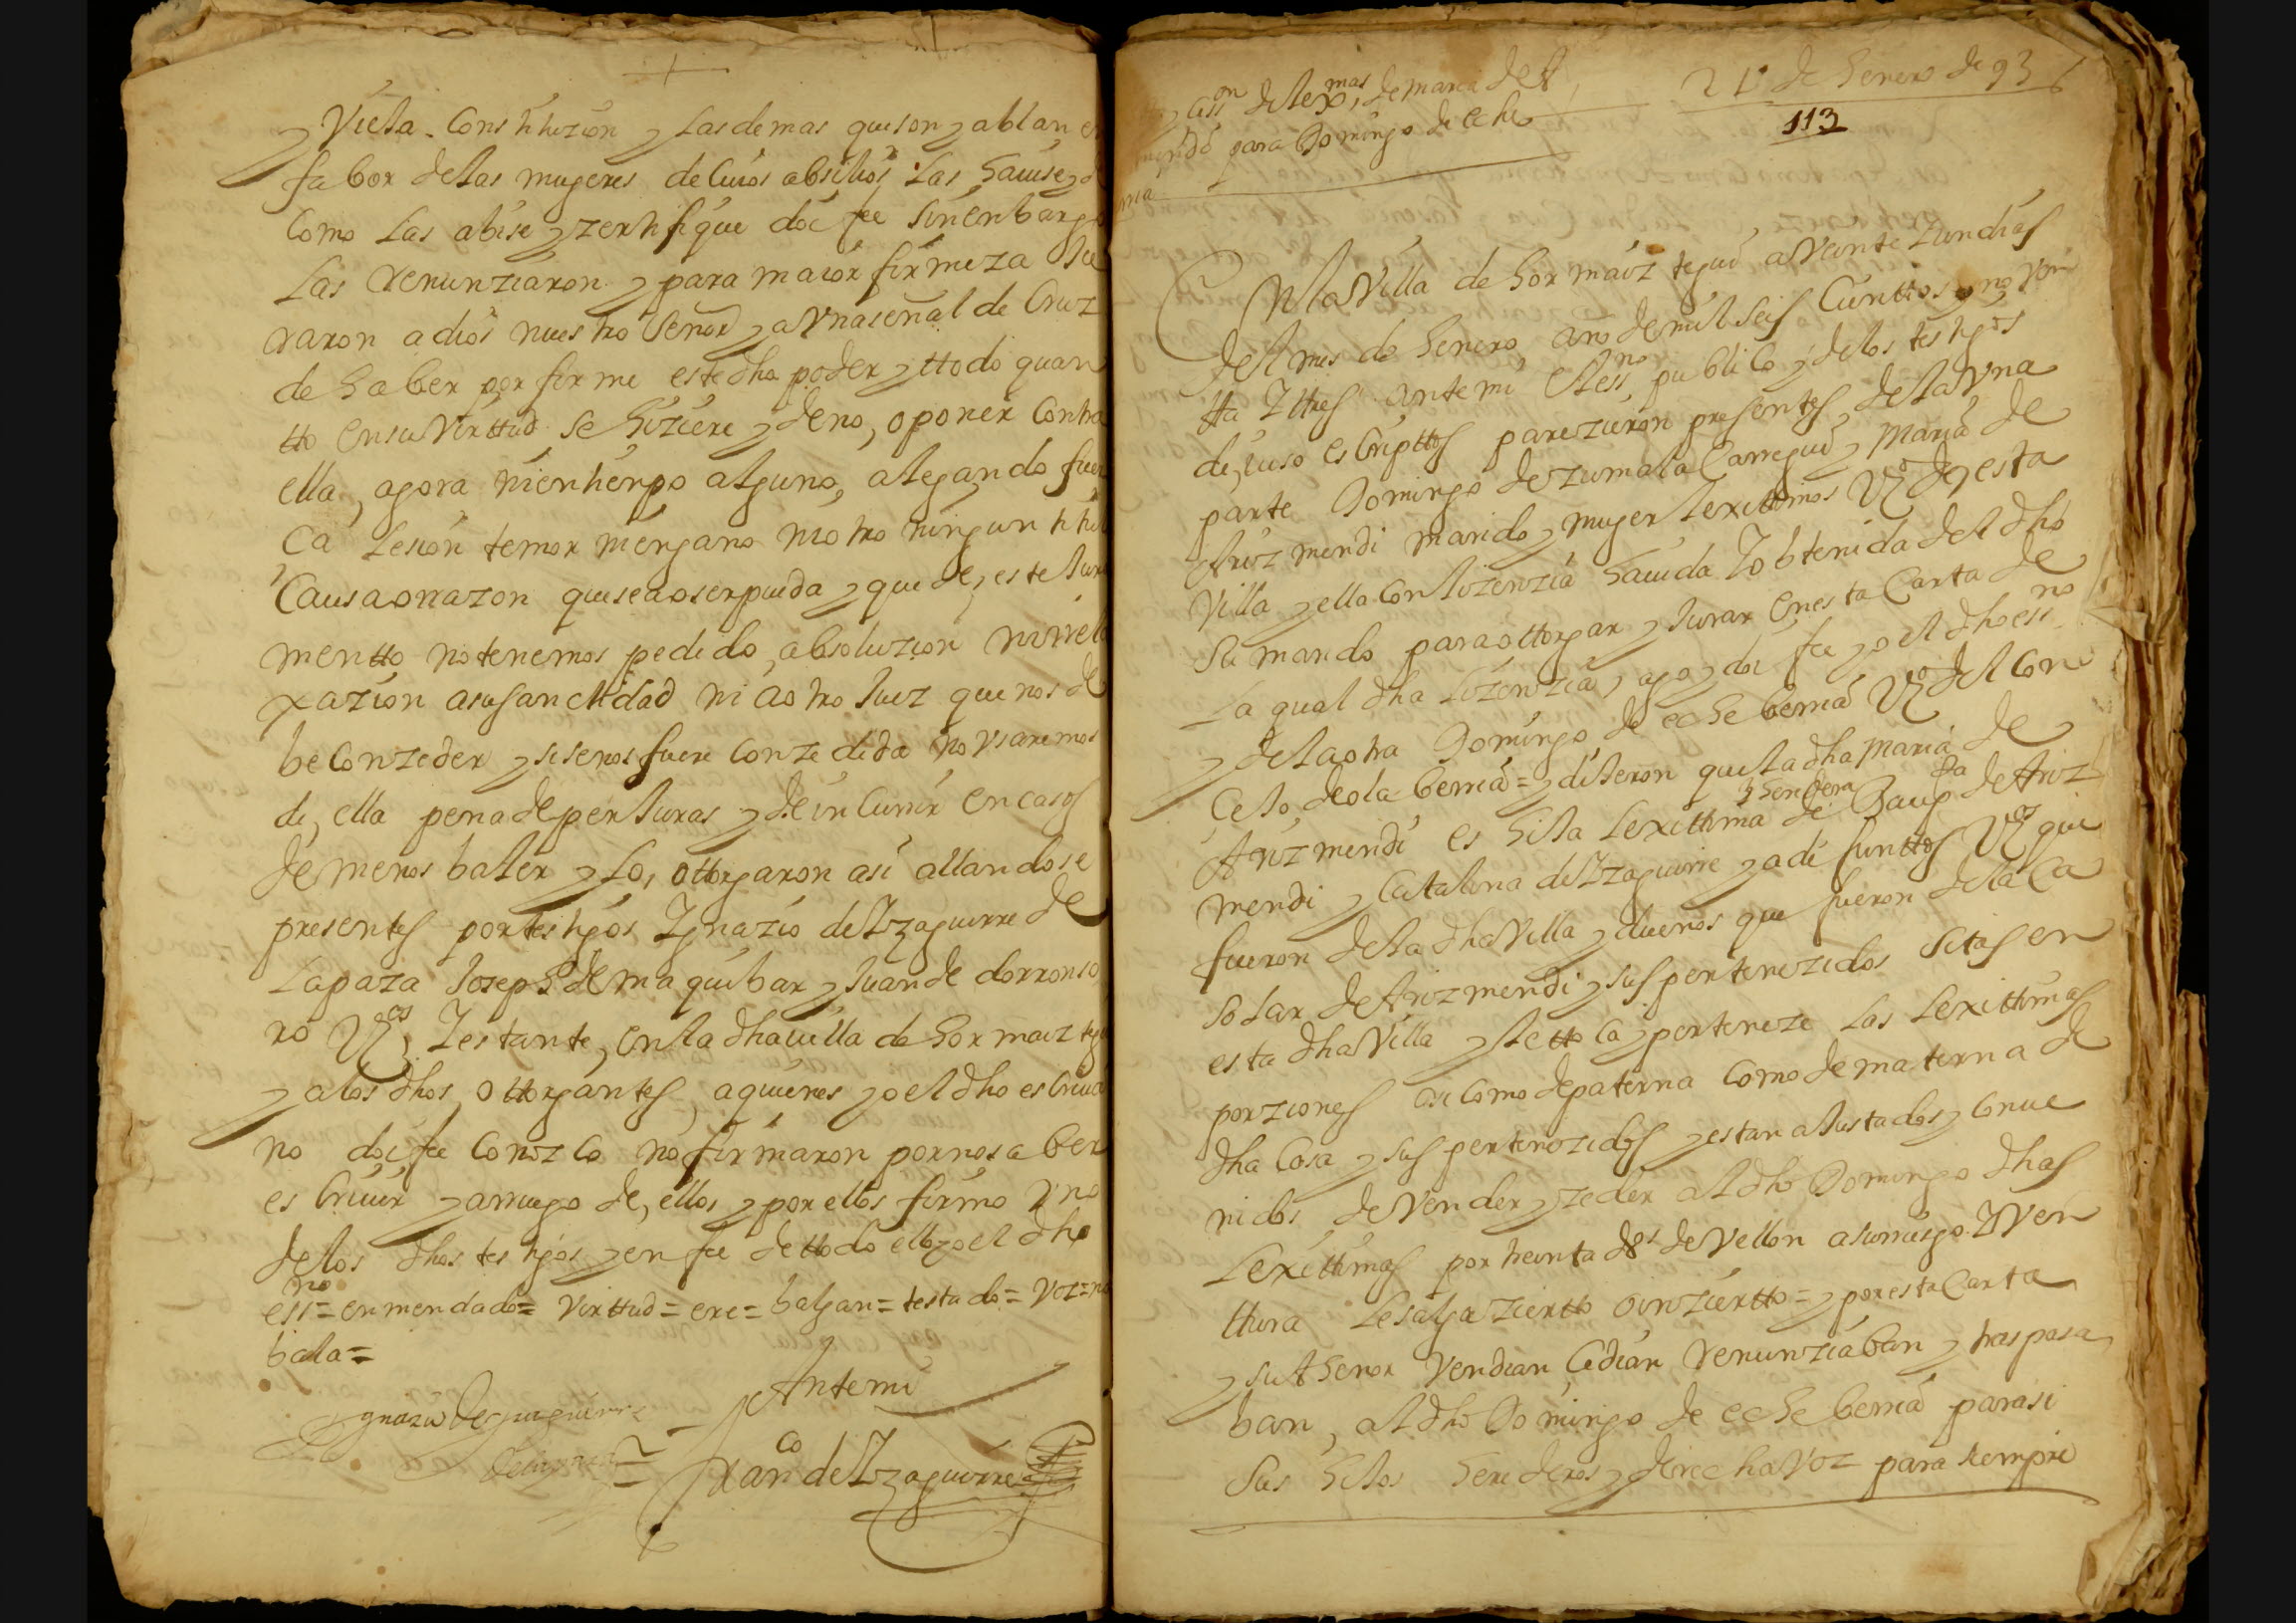 y Vieta Consttituzion y las demas que son y ablan en
fabor de las mugeres de Cuios absilios las hauise y
como las abise y zertifique doi fee sin enbargo
las Renunziaron y para maior firmeza Ju
raron a dios nuestro Señor y a Una señal de Cruz
de haber por firme este dho poder y ttodo quan
tto en su Virttud se hiziere y de no, oponer Contra
ella, agora ni en tienpo alguno, alegando fuer
ca lesion temor ni engano ni otro ningun titu
Causa o razon que sea o ser pueda y que de, este Jura
mentto no tenemos pedido, absoluzion ni rrela
xazion a su sanctidad ni a otro Juez que nos de
be Conzeder y si se nos fuere Conzedida no Usaremos
de, ella pena de perJuras y de inCurrir en casos
de menos baler y lo, ottorgaron asi allandose
presentes por testigos Ygnazio de Yzaguirre de
lapaza Joseph de maquibar y Juan de dorronso
ro Vos Yestante, en la dha uilla de hormaiztegui
y a los dhos, ottorgantes, a quienes yo el dho escriua
no doi fee Conozco no firmaron por no saber
escriuir y a rruego de, ellos y por ellos firmo Uno
de los dhos testigos y en fee de ttodo ello yo el dho
essno = enmendado = Virttud = ere = balgan = testado = Voz = no
bala =
Ygnazio de yzaguirre
Ante mi
Franco de Yzaguirre
21 de henero de 93
113
zesson de lexmas, de maria de A
mendi para Domingo de eche
rria
En la Villa de hormaiztegui a Veinte Y un dias
del mes de henero, ano de mil seis Cienttos y noVen
tta Y ttres ante mi el essno publico y de los testigos
de, iuso escripttos parezieron presentes, de la Una
parte Domingo de zumalaCarregui y maria de
Arizmendi marido y muger lexittimos Vos de, esta
Villa y ella con lizenzia hauida Y obtenida del dho
su marido para ottorgar y Jurar en esta Carta de
la qual dha lizenzia, yo, doi fee yo el dho essno
y de la otra Domingo de echeberria Vo del Con
CeJo, de olaberria = y diJeron que la dha maria de
Arizmendi es hiJa lexittima y heredera de Baupta de Ariz
mendi y Catalina de Yzaguirre ya difunttos Vos que
fueron de la dha Villa y duenos que fueron de la Ca
solar de Arizmendi y sus pertenezidos sitas en
esta dha Villa y le tto Ca y perteneze las lexittimas
porziones asi como de paterna como de materna de
dha Casa y sus pertenezidos y estan aJustados y conue
nidos de Vender y zeder al dho Domingo dhas
lexittimas por treinta ds de Vellon a su rriesgo Y Ven
ttura le salga zierttto o inzierttto = y por esta Carta
y su thenor Vendian Cedian Renunziaban y traspasa
ban, al dho Domingo de echeberria para si
sus hiJos herederos y derecha Voz para siempre